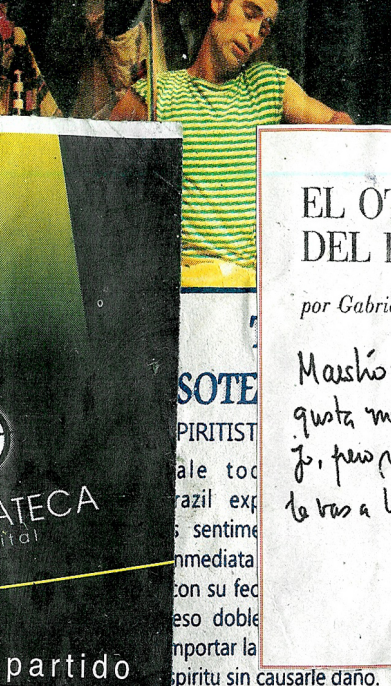 ATECA
ital
partido
SOTE
PIRITIST
ale toc
razil exp
sentime
nmediata
con su fec
eso doble
mportar la
spiritu sin causarle daño.
EL OT
DEL
por Gabrie
Maestro
gusta m
jo, pero
le vas a